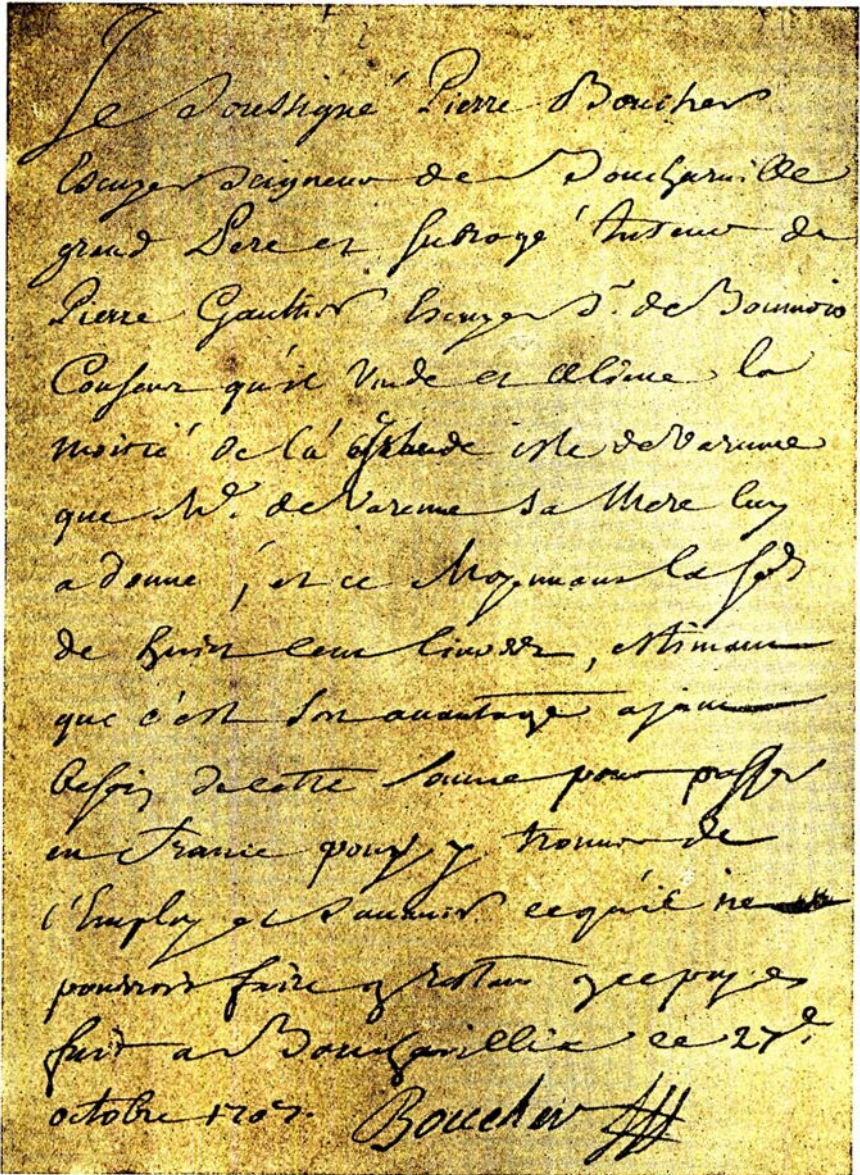 Je Soussigné Pierre Boucher
Escuyer Seigneur de Boucherville
grand Pere et subrogé Tuteur de
Pierre Gaultier Escuyer Sr. de Boumois
Consens qu'il Vende et alienne la
moitié de la grande isle de Varenne
que Me. de Varenne sa Mere luy
a donné, et ce Moyennant la
de huict cent livres, estimant
que c'est son avantage ajant
besoin de cette somme pour passer
en France pour y trouver de
l'Employ et ce qu'il ne
pourroit faire restant pays
fait a Boucherville ce 27e.
octobre 1707. Boucher